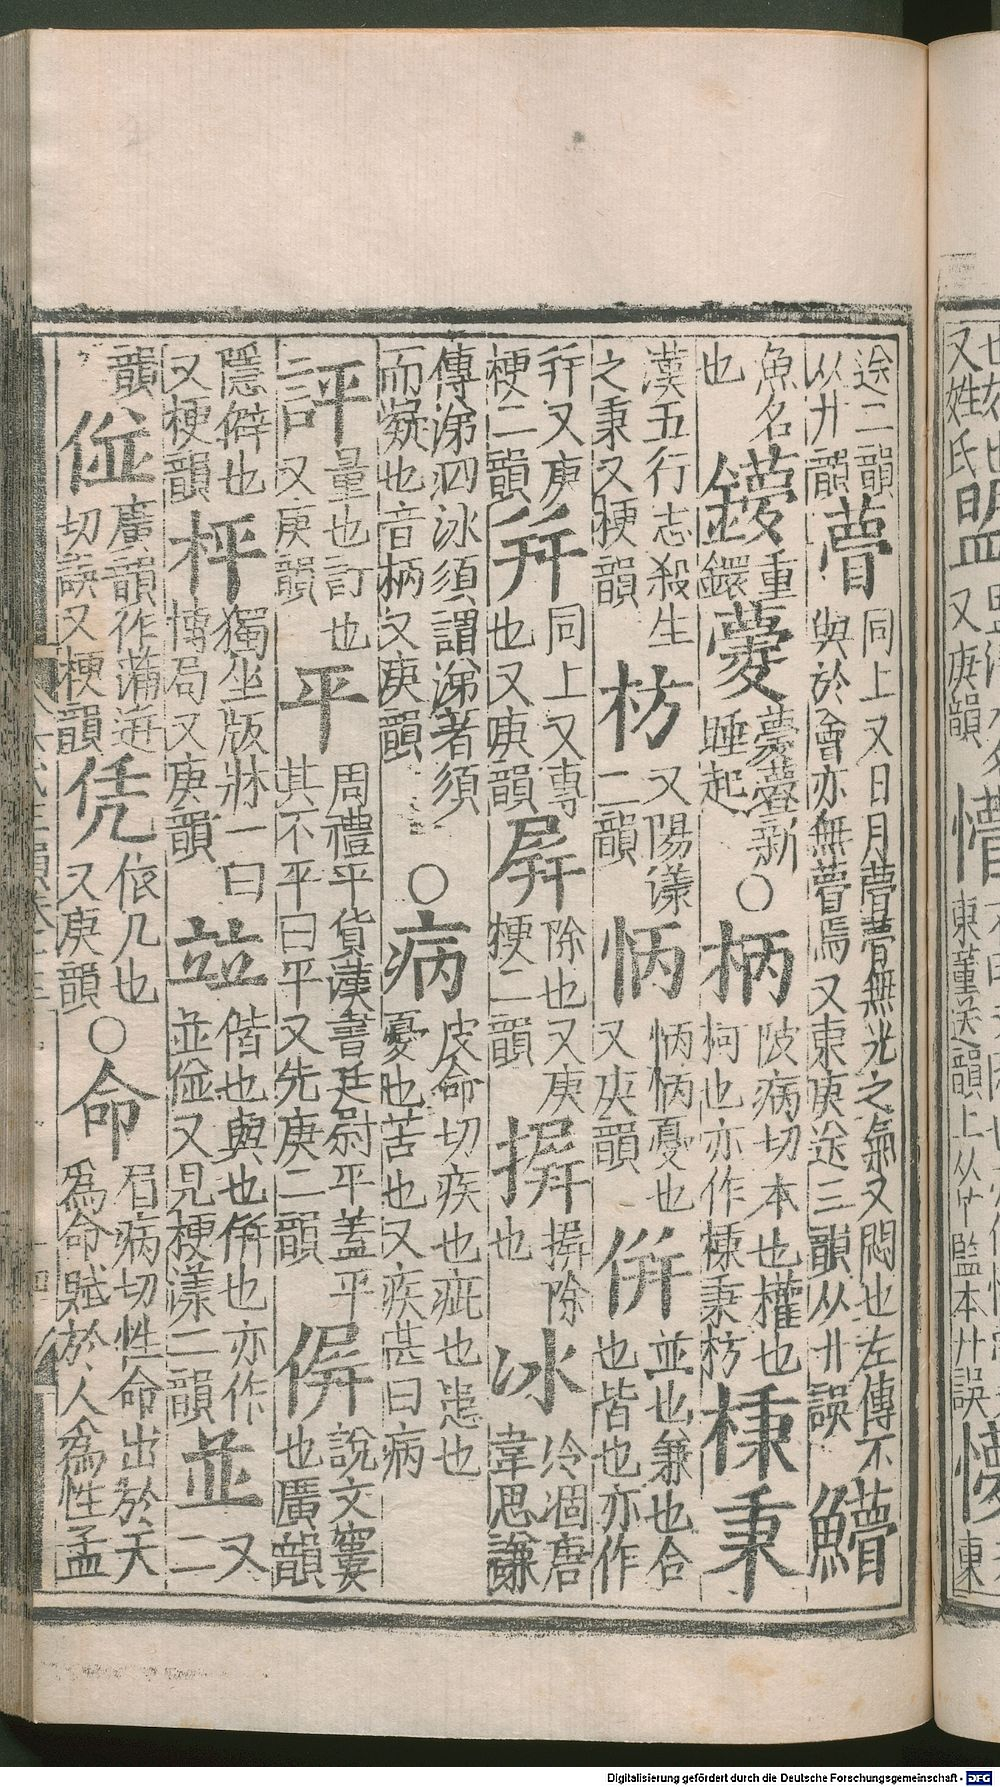 又姓氏
盟
又庚韻
懵
東董送韻上从丱監本廾誤
東
送二韻
从廾韻
瞢
同上又日月瞢瞢無光之氣又悶也左傳不
與於會亦無瞢焉又東庚送三韻从廾誤
鱛
魚名
也
重
鐶
新
睡起
○柄
陂病切本也權也
柯也亦作棅秉枋
棅
秉
漢五行志殺生
之秉又梗韻
枋
又陽漾
二韻
怲
怲怲憂也
又庚韻
併
並也兼也合
也皆也亦作
幷又庚
梗二韻
幷
同上又專
也又庚韻
屏
除也又庚
梗二韻
摒
摒除
也
冰
冷凅唐
韋思謙
傳涕泗冰須謂涕著須
而凝也音柄又庚韻
○病
皮命切疾也疵也患也
憂也苦也又疾甚曰病
二
評
量也訂也
又庚韻
平
周禮平貨漢書廷尉平蓋平
其不平曰平又先庚二韻
偋
說文寠
也廣韻
隱僻也
又梗韻
枰
獨坐版牀一曰
博局又庚韻
竝
偕也與也併也亦作
並傡又見梗漾二韻
並
又
二
韻
傡
廣韻作蒲迸
切誤又梗韻
凭
依几也
又庚韻
○命
眉病切性命出於天
為命賦於人為性孟
Digitalisierung gefördert durch die Deutsche Forschungsgemeinschaft - DFG